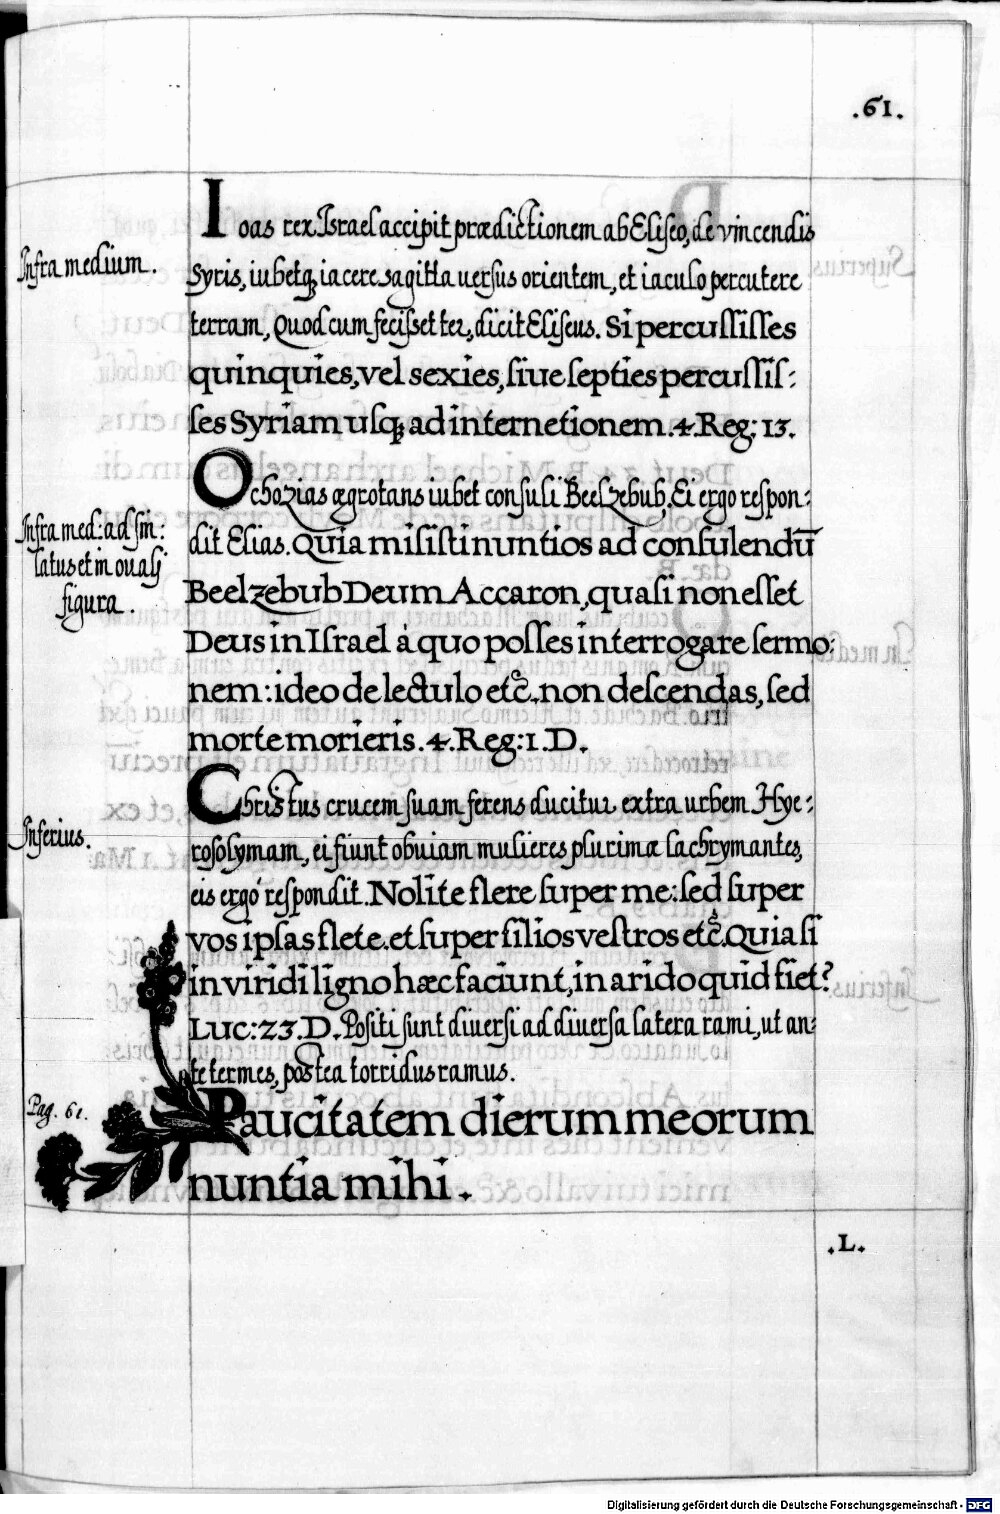 .61.
Ioas rex Israel accipit prædictionem ab Eliseo, de vincendis
Infra medium.
Syris, iubetq; iacere sagitta uersus orientem, et iaculo percutere
terram, Quod cum fecisset ter, dicit Eliseus. Si percussisses
quinquies, vel sexies, siue septies percussis:
ses Syriam usq; ad internetionem. 4. Reg: 13.
Ochozias ægrotans iubet consuli Beelzebub, Ei ergo respon:
Infra med: ad sin:
latus et in ouali
figura.
dit Elias. Quia misisti nuntios ad consulendū
Beelzebub Deum Accaron, quasi non esset
Deus in Israel à quo posses interrogare sermo:
nem: ideo de lectulo etc̃. non descendas, sed
morte morieris. 4. Reg: 1. D.
Christus crucem suam ferens ducitur extra urbem Hye:
Inferius.
rosolymam, ei fiunt obuiam mulieres plurimæ lachrymantes,
eis ergo respondit. Nolite flere super me: sed super
vos ipsas flete. et super filios vestros etc̃. Quia si
in viridi ligno hæc faciunt, in arido quid fiet?
Luc: 23. D. Positi sunt diuersi ad diuersa latera rami, ut an:
te termes, postea torridus ramus.
Pag. 61.
Paucitatem dierum meorum
nuntia mihi.
.L.
Digitalisierung gefördert durch die Deutsche Forschungsgemeinschaft - DFG